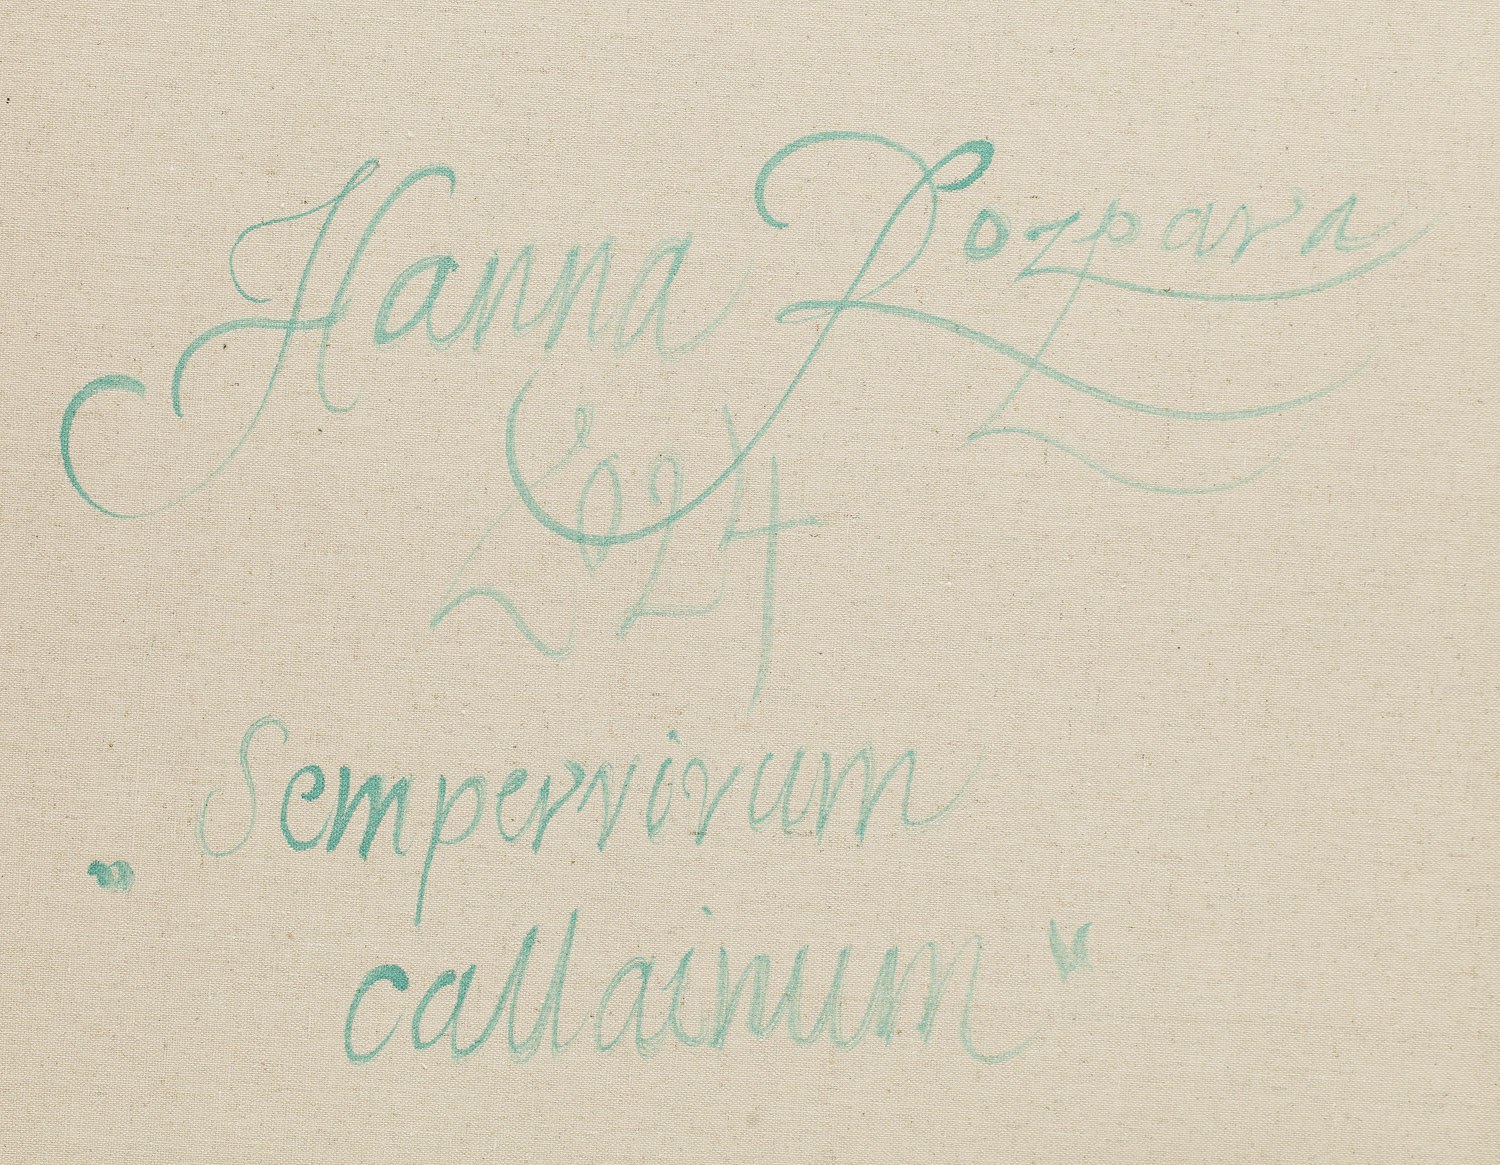 Hanna Rozpara
2024
„Sempervivum
callainum"